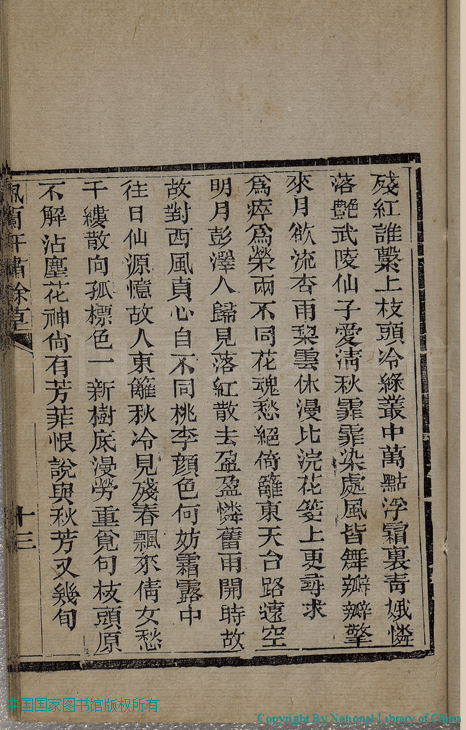 殘紅誰繫上枝頭冷綠叢中萬點浮霜裏青娥憐
落艷武陵仙子愛淸秋霏霏染處風皆舞瓣瓣擎
來月欲流杏雨梨雲休漫比浣花箋上更尋求
爲瘁爲榮兩不同花魂愁絕倚籬東天台路遠空
明月彭澤人歸見落紅散去盈盈憐舊雨開時故
故對西風貞心自不同桃李顏色何妨霜露中
往日仙源憶故人東籬秋冷見殘春飄來倩女愁
千縷散向孤標色一新樹底漫勞重覓句枝頭原
不解沾塵花神尙有芳菲恨說與秋芳又幾旬
餘草
十三
中国国家图书馆版权所有
Copyright By National Library of China